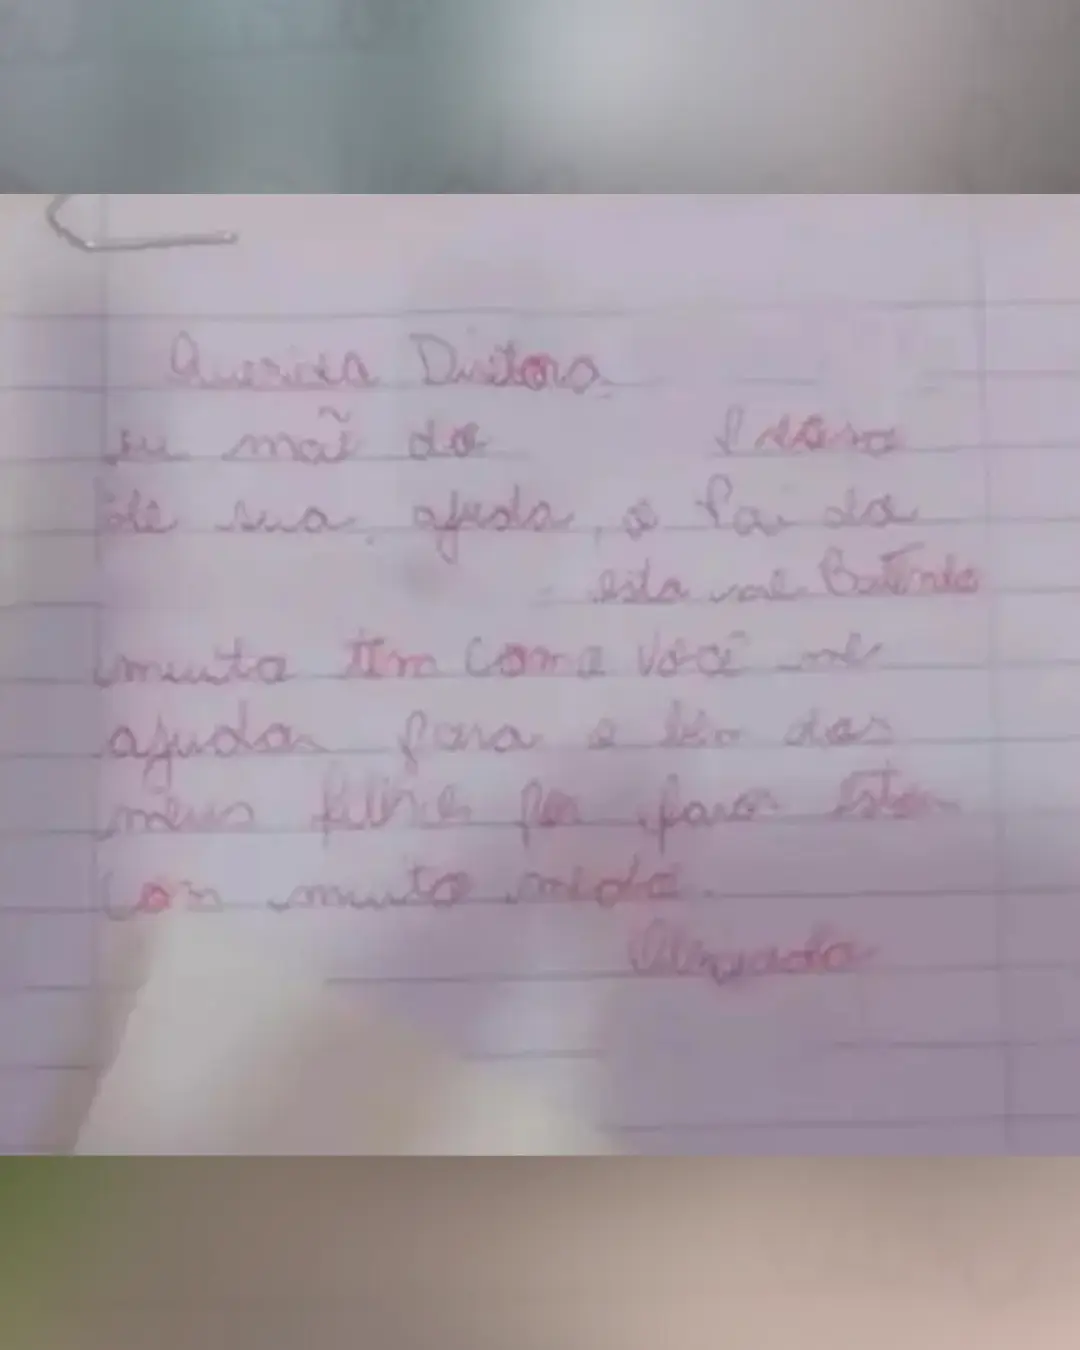 Querida Diretora
eu mãe da preciso
de sua ajuda, o Pai da
esta me Batendo
muito tem como você me
ajudar para o bem dos
meus filhos por favor estou
com muito medo.
Obrigada